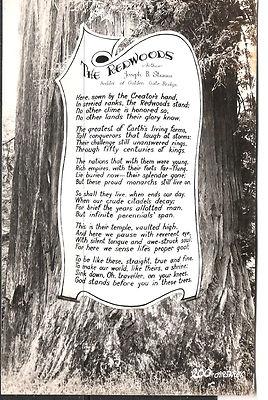 The Redwoods
Author
Joseph B. Strauss
Builder of Golden Gate Bridge
Here, sown by the Creator's hand,
In serried ranks, the Redwoods stand;
No other clime is honored so,
No other lands their glory know.
The greatest of Earth's living forms,
Tall conquerors that laugh at storms;
Their challenge still unanswered rings,
Through fifty centuries of kings.
The nations that with them were young,
Rich empires, with their forts far-flung,
Lie buried now— their splendor gone;
But these proud monarchs still live on.
So shall they live, when ends our day,
When our crude citadels decay;
For brief the years allotted man,
But infinite perennials' span.
This is their temple, vaulted high,
And here we pause with reverent eye,
With silent tongue and awe-struck soul;
For here we sense life's proper goal;
To be like these, straight, true and fine,
To make our world, like theirs, a shrine;
Sink down, Oh, traveller, on your knees,
God stands before you in these trees.
200